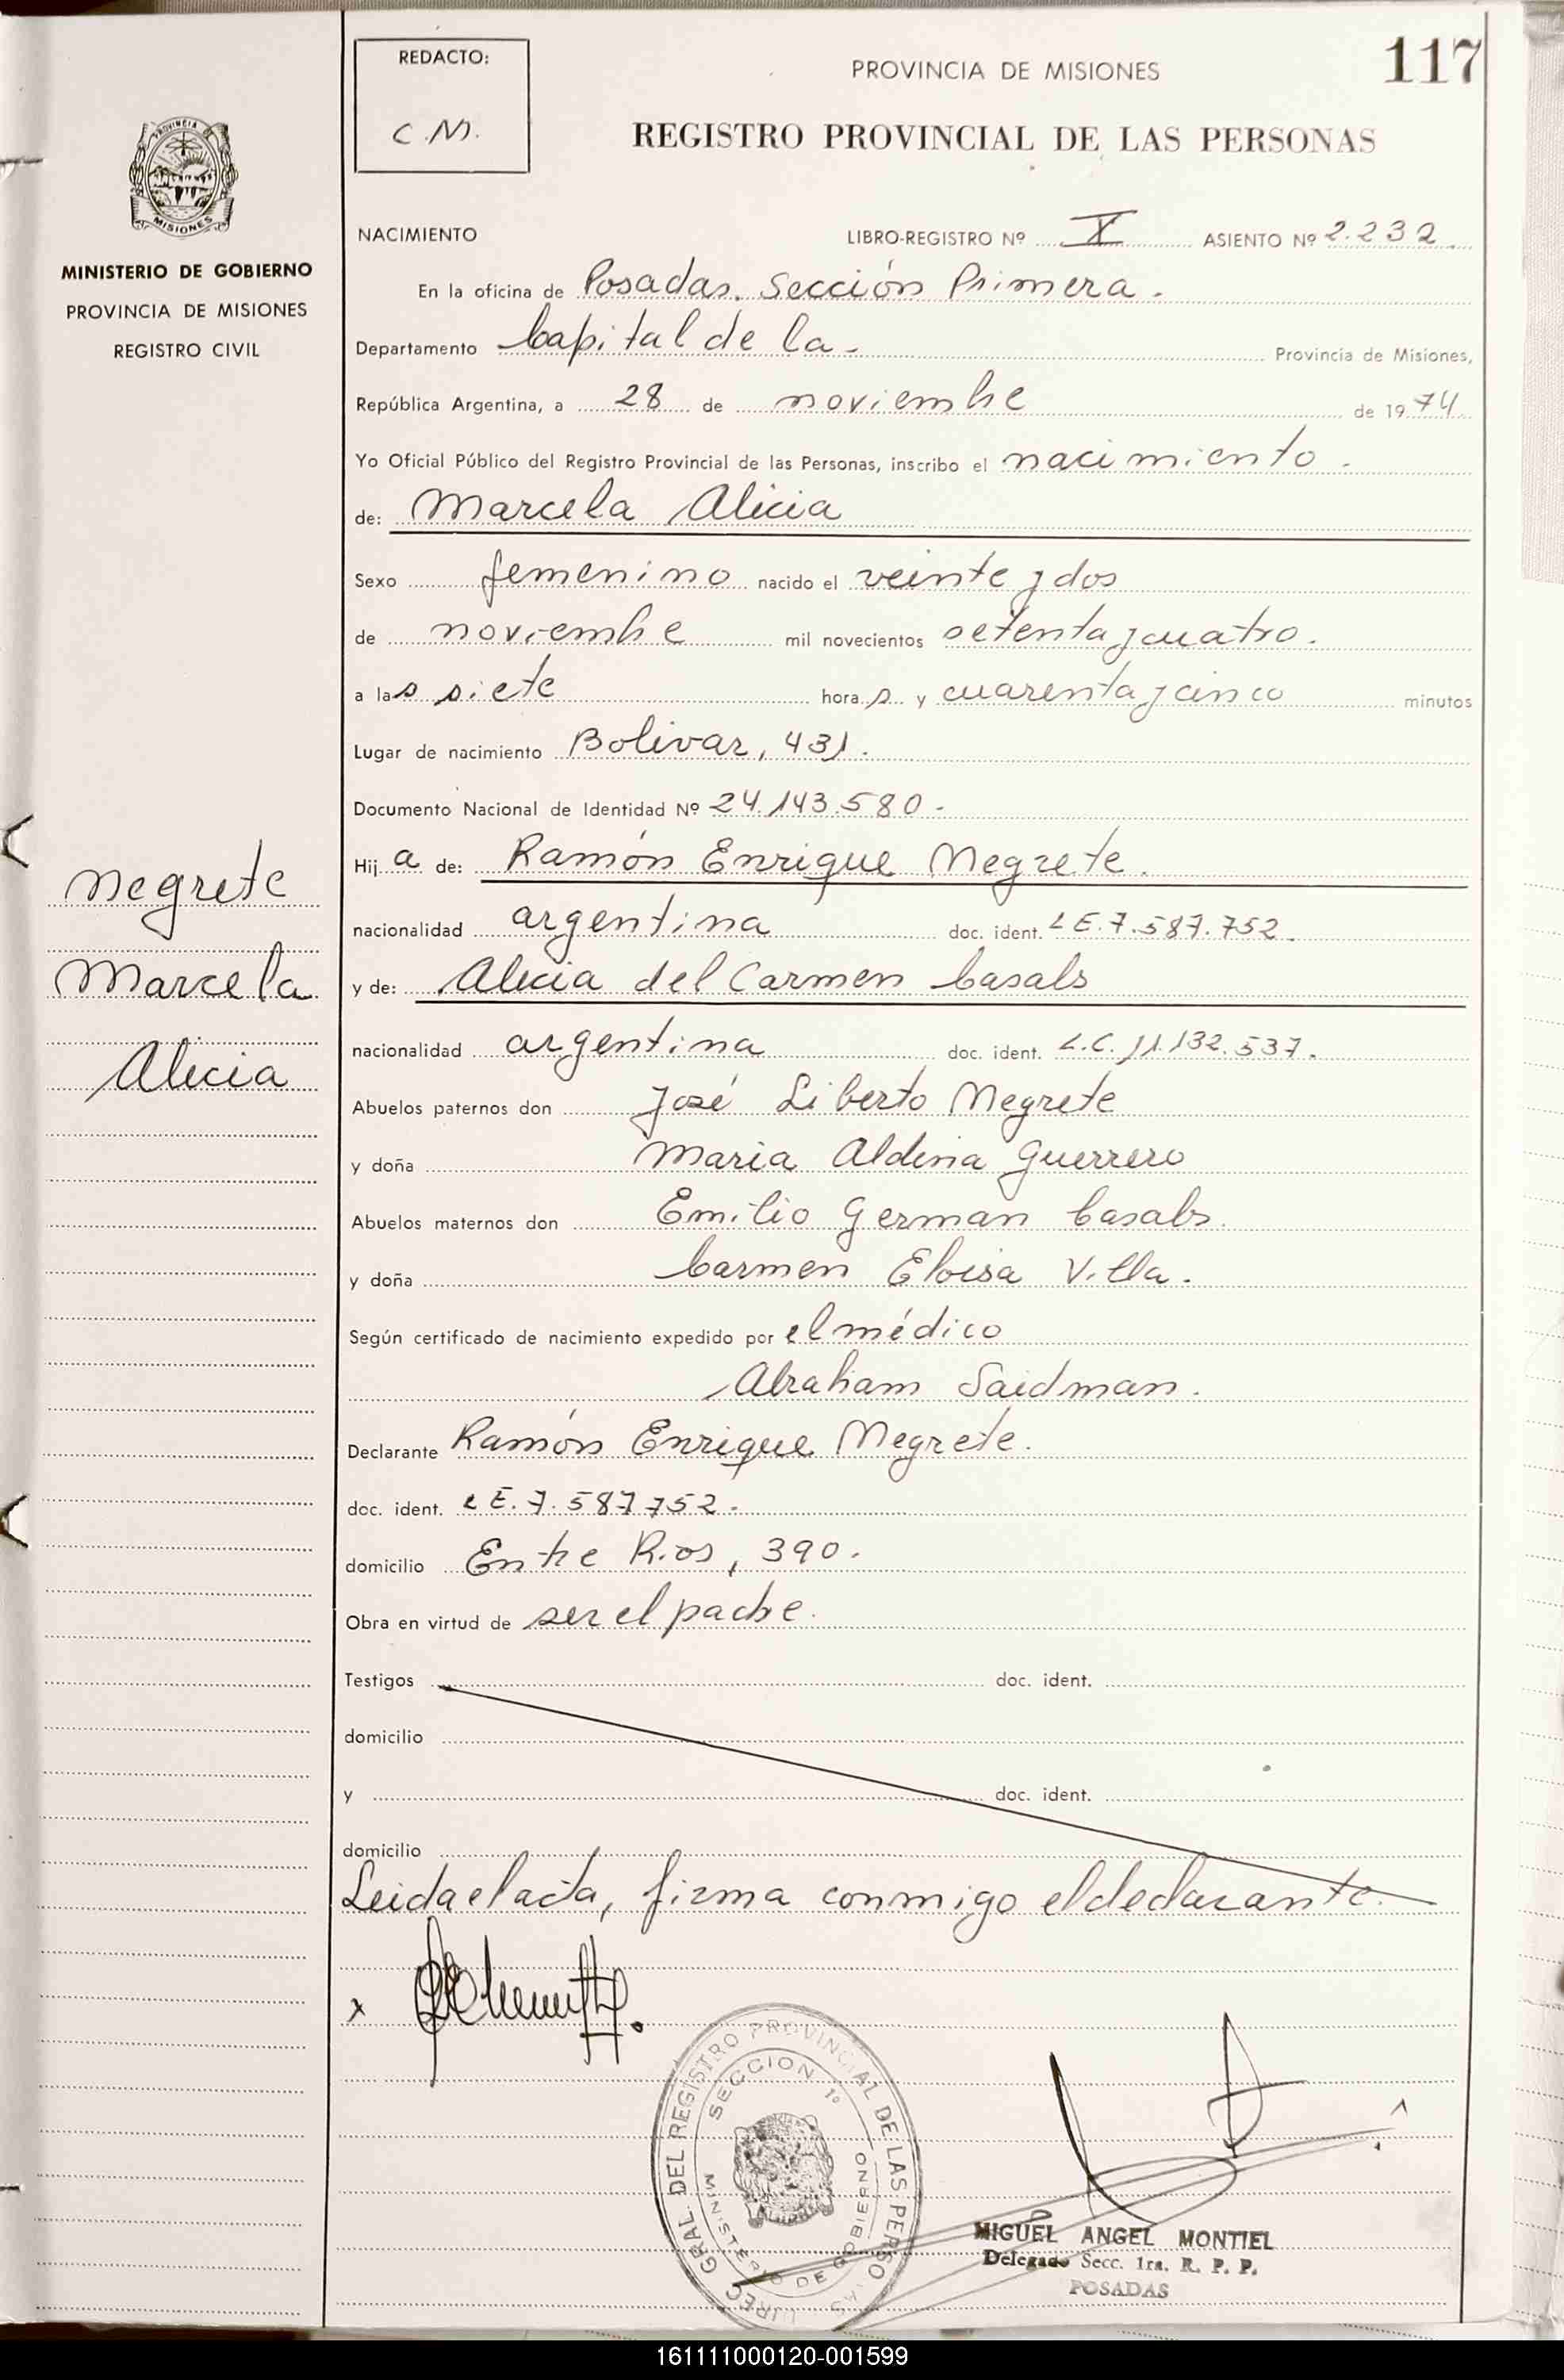 REDACTO:
C.M.
PROVINCIA DE MISIONES
117
REGISTRO PROVINCIAL DE LAS PERSONAS
PROVINCIA
MISIONES
MINISTERIO DE GOBIERNO
PROVINCIA DE MISIONES
REGISTRO CIVIL
NACIMIENTO LIBRO-REGISTRO Nº X ASIENTO Nº 2.232
En la oficina de Posadas. Sección Primera.
Departamento Capital de la- Provincia de Misiones,
República Argentina, a 28 de noviembre de 1974
Yo Oficial Público del Registro Provincial de las Personas, inscribo el nacimiento.
de: Marcela Alicia
Sexo femenino nacido el veinte y dos
de noviembre mil novecientos setenta y cuatro.
a las siete horas y cuarenta y cinco minutos
Lugar de nacimiento Bolivar, 431.
Documento Nacional de Identidad Nº 24.143.580-
Hija de: Ramón Enrique Negrete.
nacionalidad argentina doc. ident. LE.7.587.752.
y de: Alicia del Carmen Casals
nacionalidad argentina doc. ident. L.C. 11.132.537.
Abuelos paternos don José Liberto Negrete
y doña Maria Aldina Guerrero
Abuelos maternos don Emilio German Casals.
y doña Carmen Eloisa Villa.
Según certificado de nacimiento expedido por el médico
Abraham Saidman.
Declarante Ramón Enrique Negrete.
doc. ident. LE.7.587752-
domicilio Entre Rios, 390.
Obra en virtud de ser el padre.
Testigos doc. ident.
domicilio
y doc. ident.
domicilio
Leida el acta, firma conmigo el declarante.
Negrete
Marcela
Alicia
x
DIREC. GRAL. DEL REGISTRO PROVINCIAL DE LAS PERSONAS
SECCION 1º
MINISTERIO DE GOBIERNO
MIGUEL ANGEL MONTIEL
Delegado Secc. 1ra. R. P. P.
POSADAS
161111000120-001599